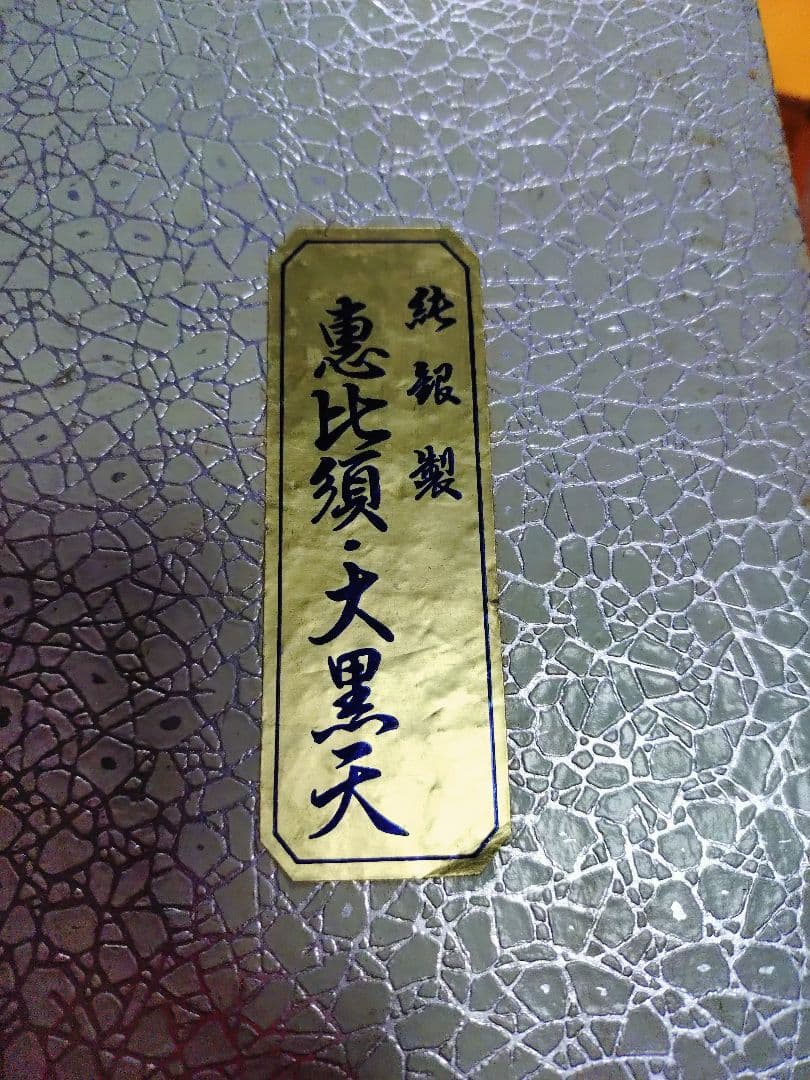 純銀製
惠比須・大黒天